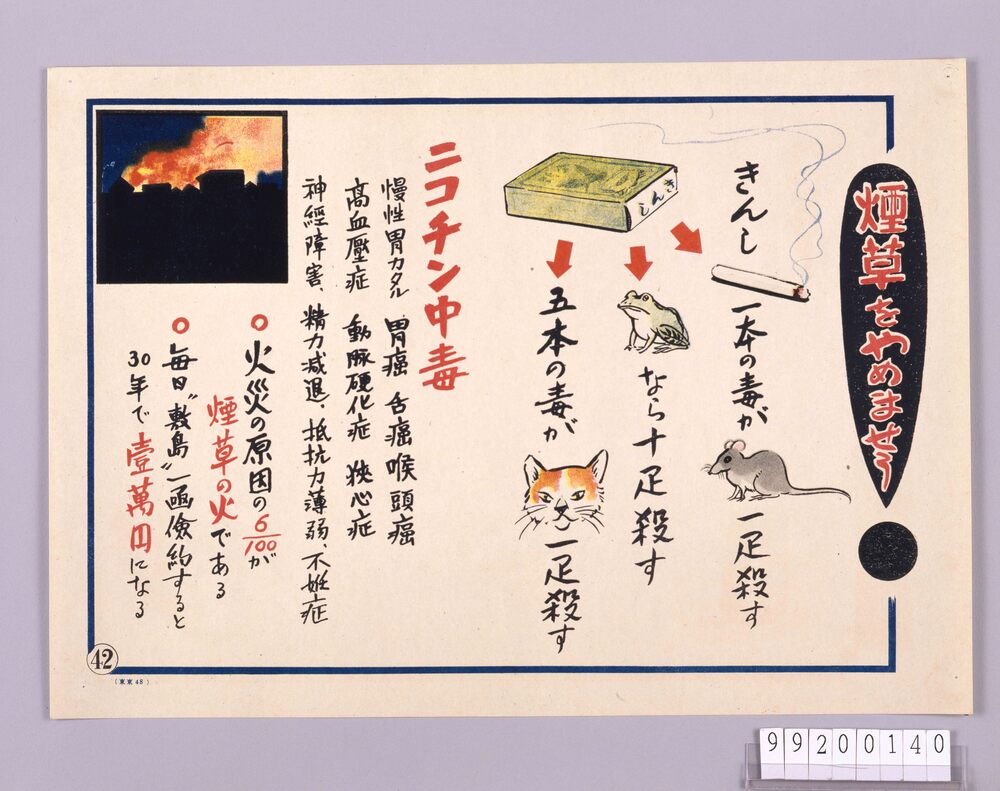 煙草をやめませう
きんし
一本の毒が
一疋殺す
きんし
なら十疋殺す
五本の毒が
一疋殺す
ニコチン中毒
慢性胃カタル 胃癌 舌癌 喉頭癌
高血壓症 動脈硬化症 狹心症
神經障害、精力減退、抵抗力薄弱、不姙症
火災の原因の6/100が
煙草の火である
毎日〝敷島〟一凾儉約すると
30年で壹萬円になる
42
(東京48)
99200140